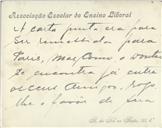 Associação Escolar de Ensino Liberal
A carta junta era para
ser remettida para
Paris, mas como o Doutor
se encontra já entre
os seus amigos, rogo
lhe o favor de
R. de S.